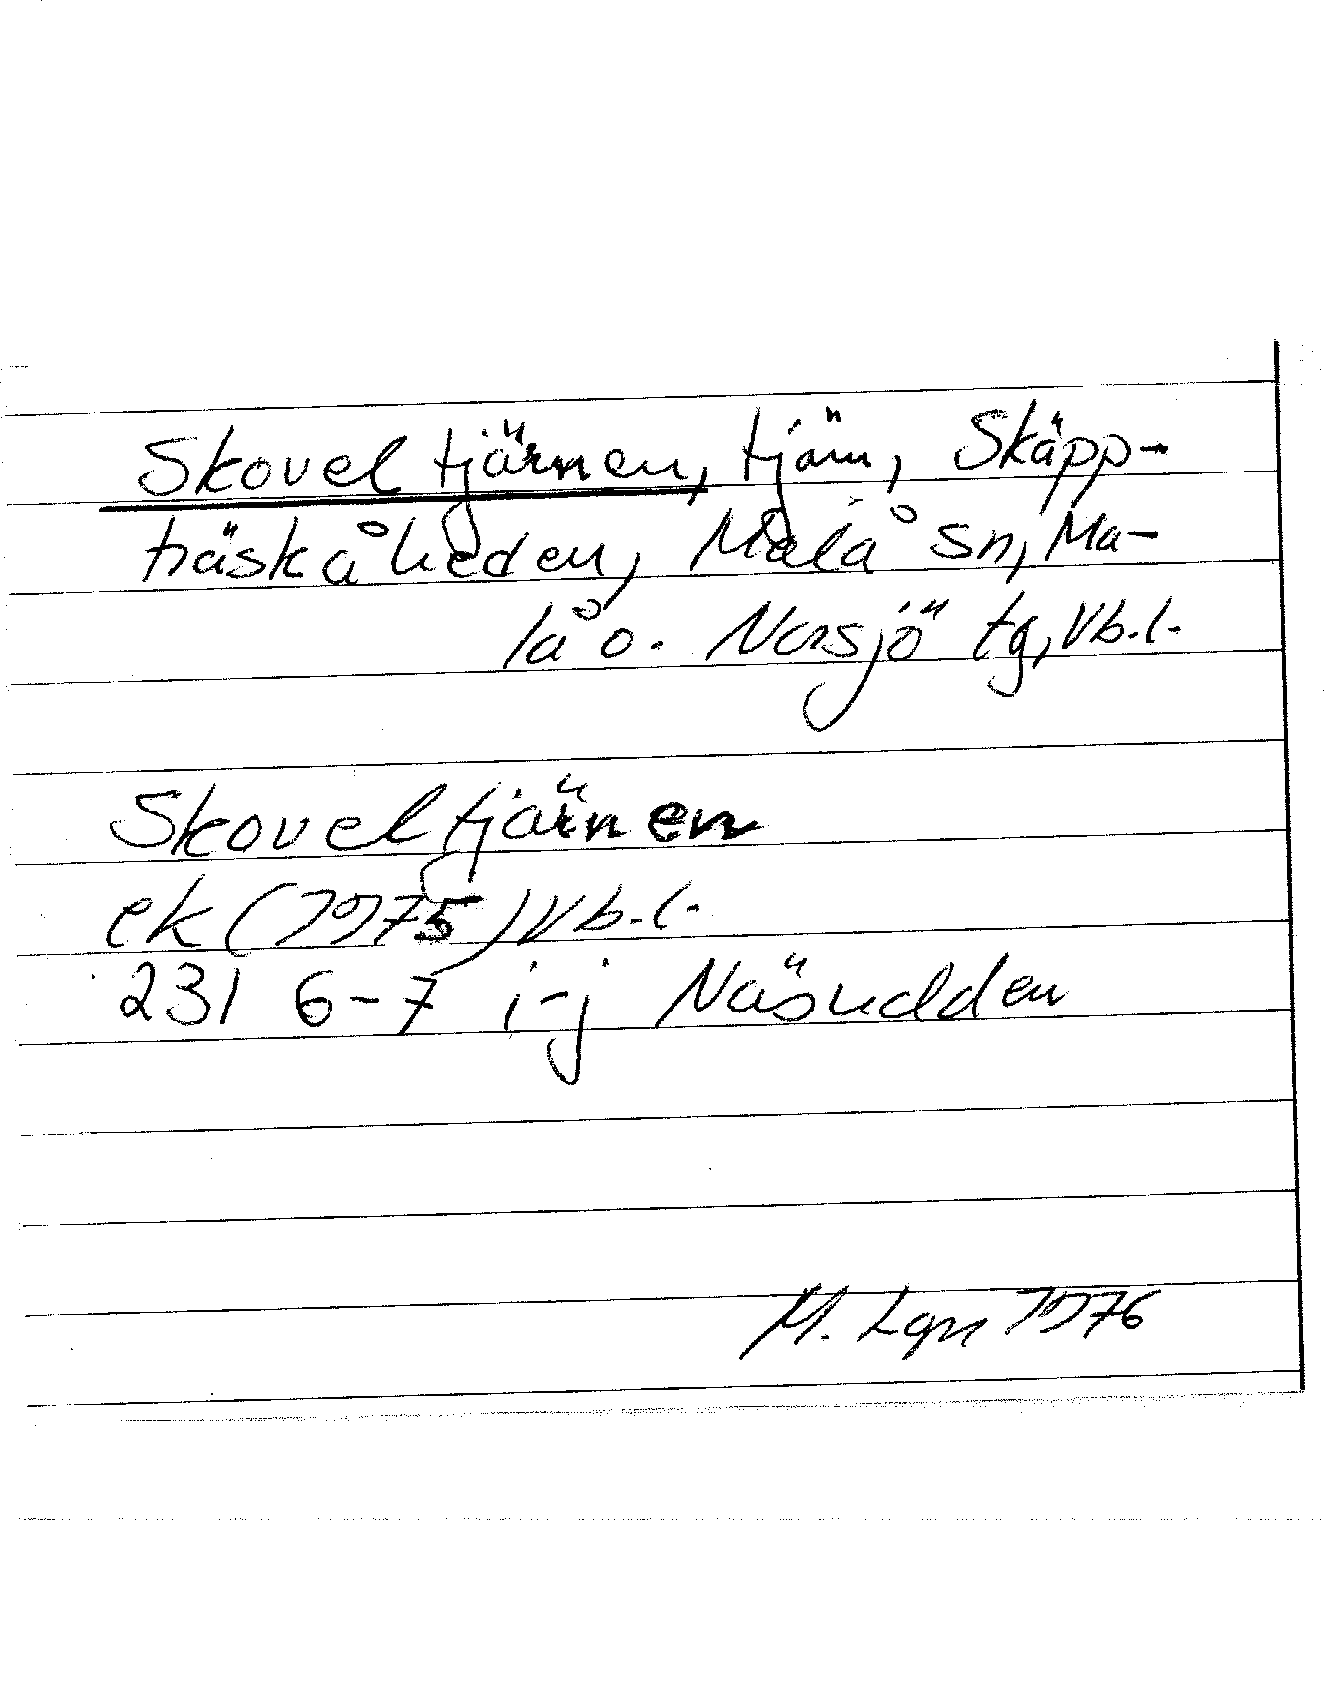 Skoveltjärnen, tjärn, Skäpp-
träskåheden, Malå sn, Ma-
lå o. Norsjö tg, Vb.l.
Skoveltjärnen
ek (1975) Vb.l.
23I 6-7 i-j Näsudden
M. Lgn 1976